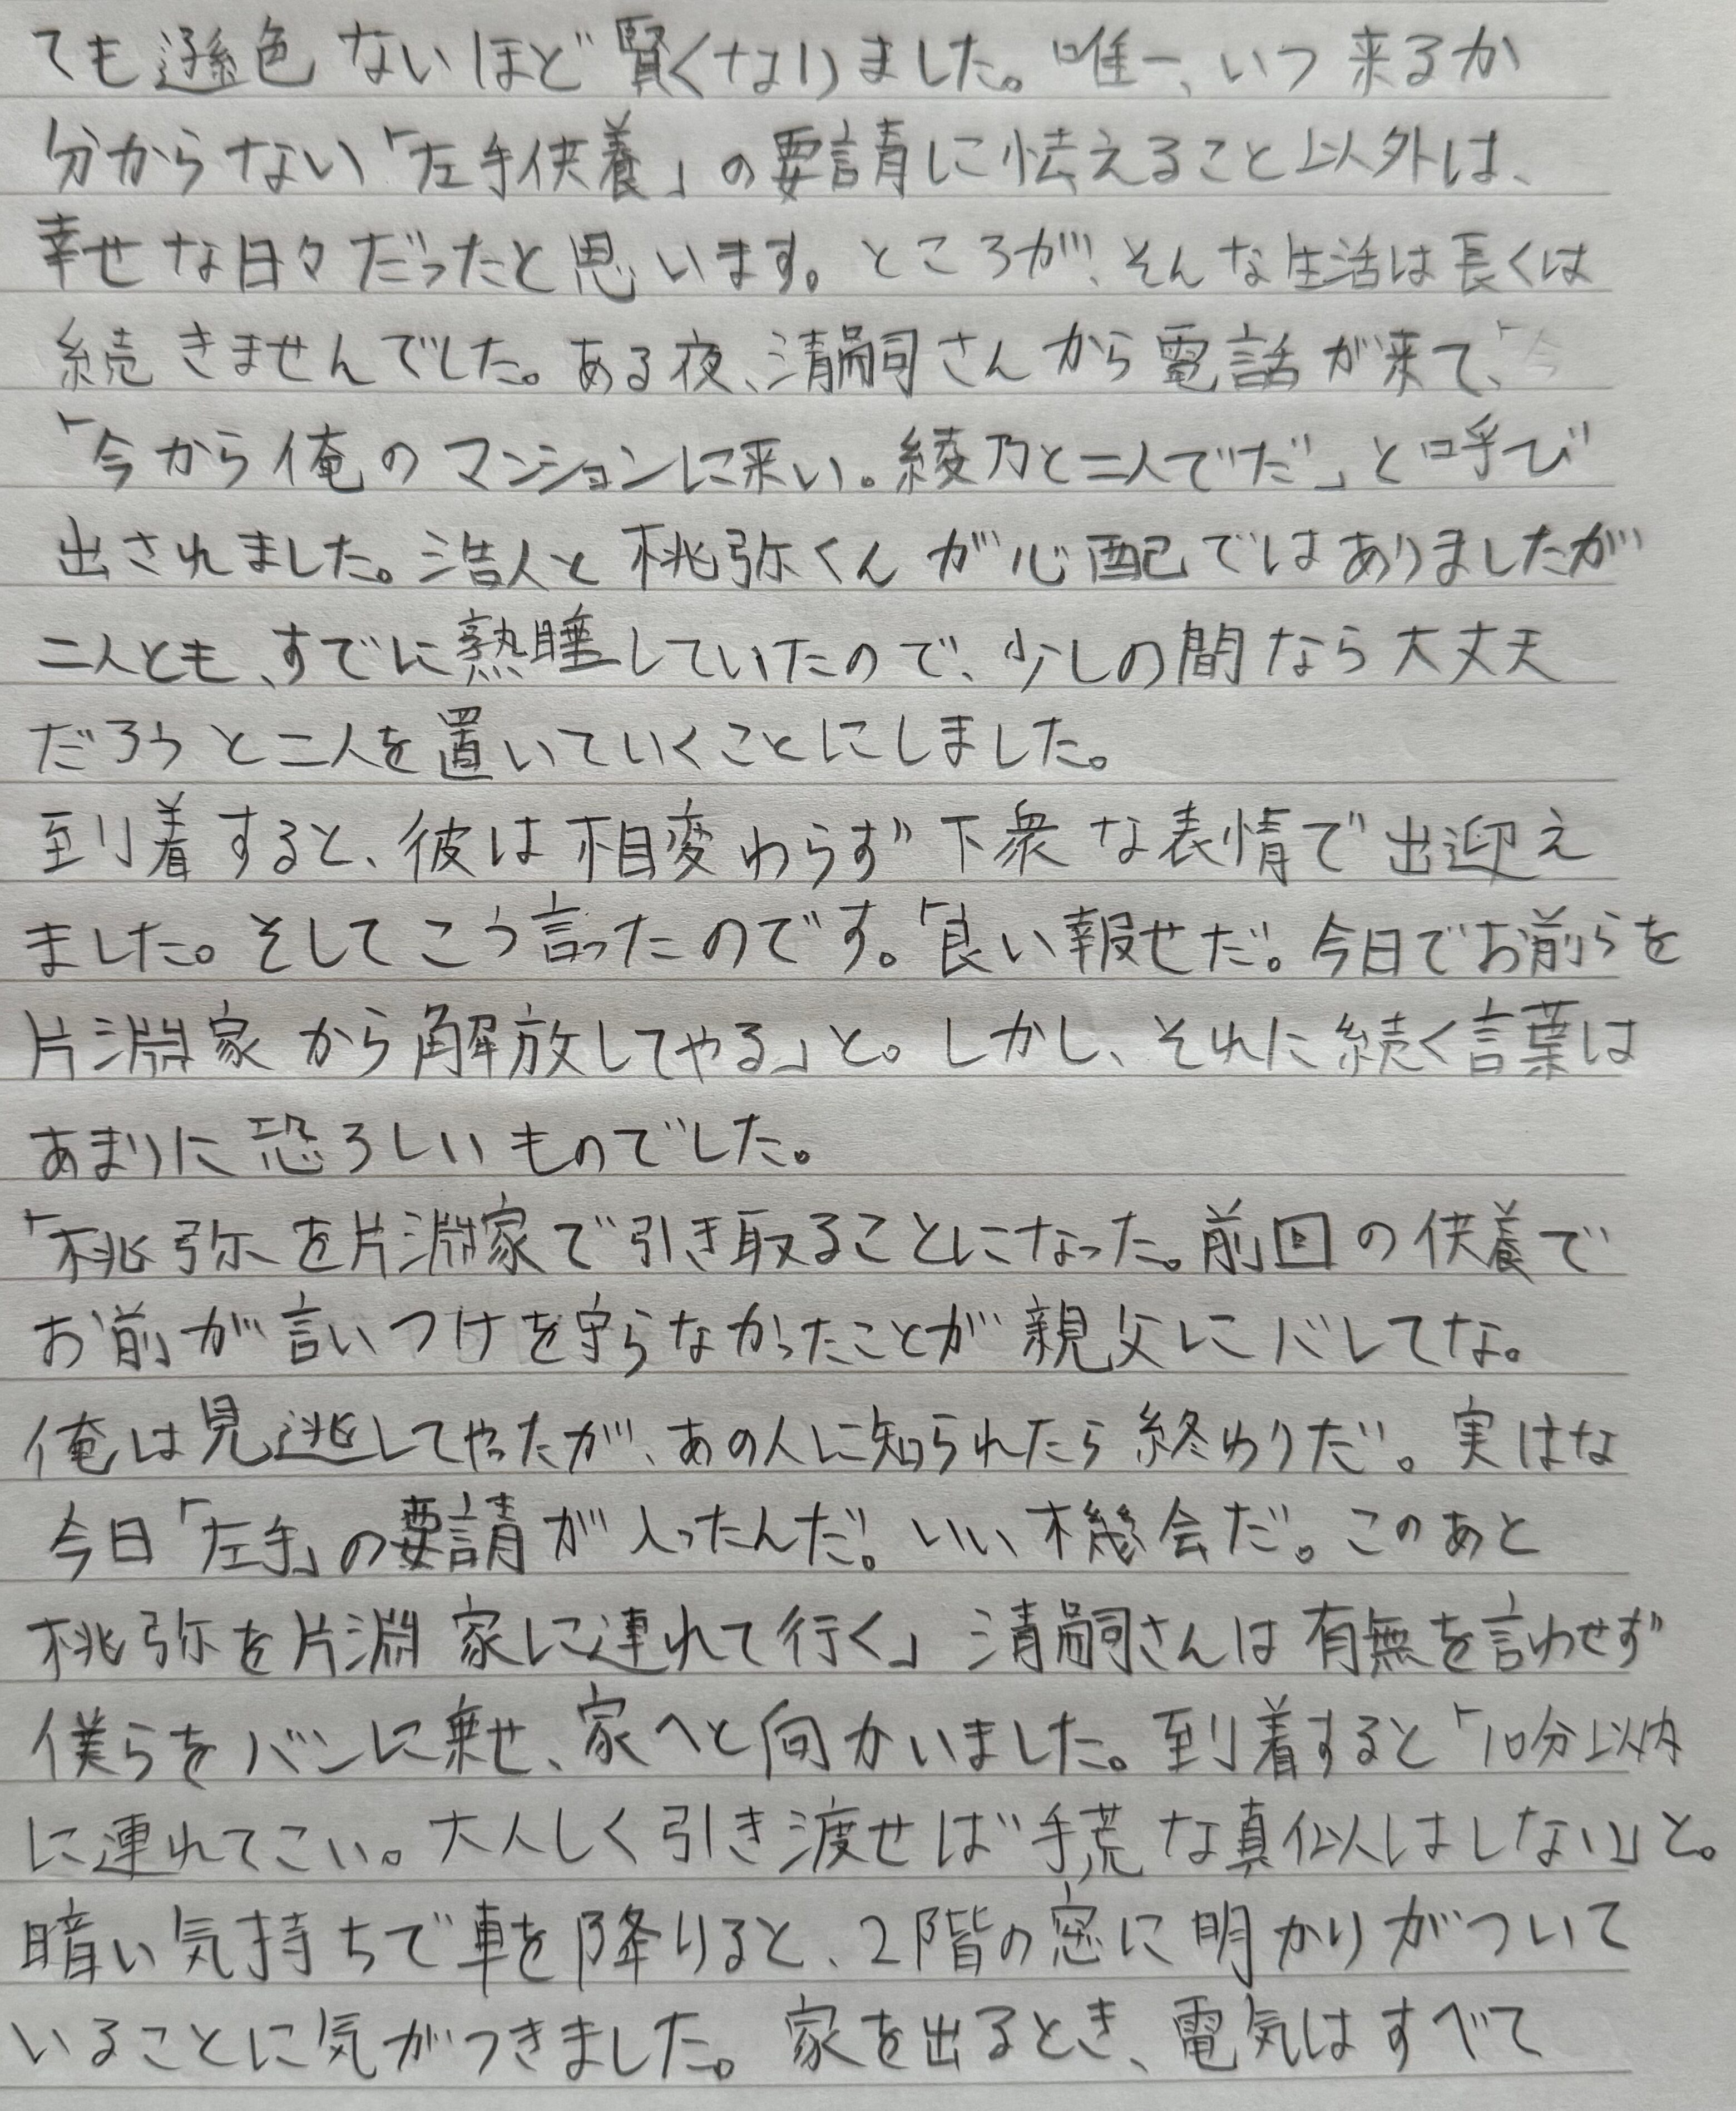 ても遜色ないほど賢くなりました。唯一、いつ来るか
分からない「左手供養」の要請に怯えること以外は、
幸せな日々だったと思います。ところが、そんな生活は長くは
続きませんでした。ある夜、清嗣さんから電話が来て、「今
「今から俺のマンションに来い。綾乃と二人でだ」と呼び
出されました。浩人と桃弥くんが心配ではありましたが
二人とも、すでに熟睡していたので、少しの間なら大丈夫
だろうと二人を置いていくことにしました。
到着すると、彼は相変わらず下衆な表情で出迎え
ました。そしてこう言ったのです。「良い報せだ。今日でお前らを
片淵家から解放してやる」と。しかし、それに続く言葉は
あまりに恐ろしいものでした。
「桃弥を片淵家で引き取ることになった。前回の供養で
お前が言いつけを守らなかったことが親父にバレてな。
俺は見逃してやったが、あの人に知られたら終わりだ。実はな
今日「左手」の要請が入ったんだ。いい機会だ。このあと
桃弥を片淵家に連れて行く」清嗣さんは有無を言わせず
僕らをバンに乗せ、家へと向かいました。到着すると「10分以内
に連れてこい。大人しく引き渡せば手荒な真似はしない」と。
暗い気持ちで車を降りると、2階の窓に明かりがついて
いることに気がつきました。家を出るとき、電気はすべて